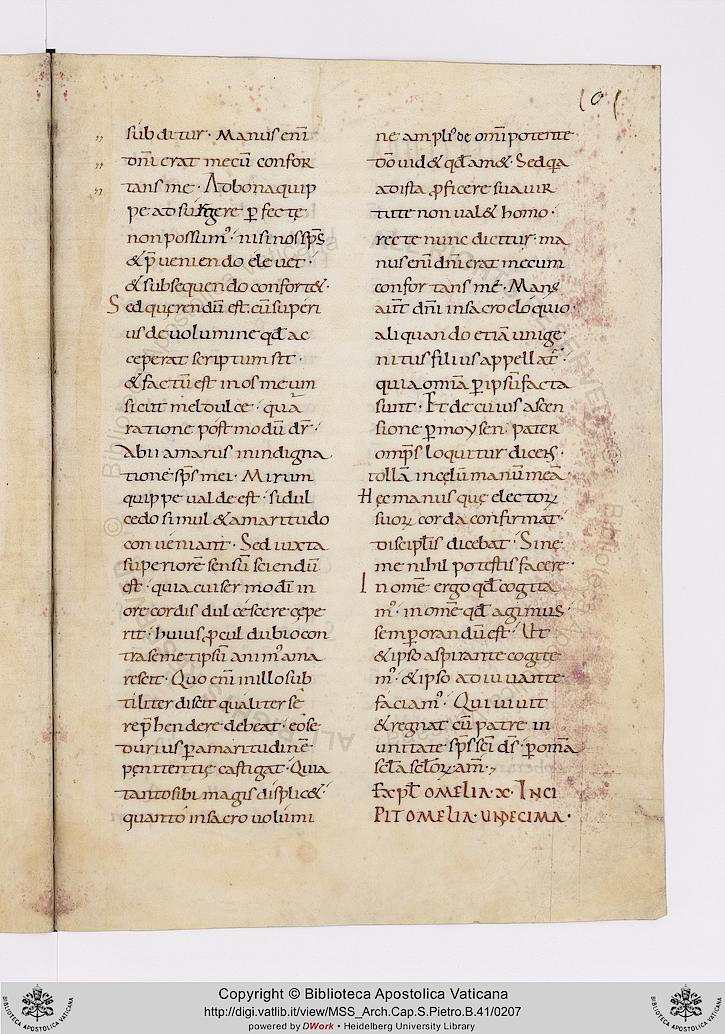 101
subditur· Manus eni̅
dn̅i erat mecu̅ confor
tans me· Ad bona quip
pe adsurgere p̲fecte
non possum᾽· nisi nos sp̅s
& p̅ueniendo eleuet·
& subsequendo confort&·
Sed querendu̅ est· cu̅ superi
us de uolumine qd̅ ac
ceperat scriptum sit·
& factu̅ est in os meum
sicut mel dulce· qua
ratione post modu̅ dr̅·
Abii amarus in indigna
tione sp̅s mei· Mirum
quippe ualde est· si dul
cedo simul & amaritudo
conueniant· Sed iuxta
superiore̅ sensu̅ sciendu̅
est· quia cui sermo dī in
ore cordis dulcescere cępe
rit· huius p̲cul dubio con
tra semetipsu̅ anim᾽ ama
rescit· Quo eni̅ in illo sub
tiliter discit qualiter se
rep̅hendere debeat· eo se
durius p̲ amaritudine̅
pęnitentię castigat· Quia
tanto sibi magis displic&·
quanto in sacro uolumi
ne ampli᾽ de om̅ipotente
do̅ uid& qd̅ am&· Sed qa
ad ista p̲ficere sua uir
tute non ual& homo·
recte nunc dicitur· ma
nus eni̅ dn̅i erat mecum
confortans me· Man᾽
aut̅ dn̅i in sacro eloquio·
aliquando etia̅ unige
nitus filius appellat᾽·
quia om̅ia p̲ ipsu̅ facta
sunt· Et de cuius ascen
sione p̲ moysen· pater
omp̅s loquitur dicens·
tolla̅ in cęlu̅ manu̅ mea̅·
Hęc manus quę electoꝝ
suoꝝ corda confirmat·
discipl̅is dicebat· Sine
me nihil potestis facere·
In om̅e ergo qd̅ cogita
m᾽· in om̅e qd̅ agimus·
semp̲ orandu̅ est· Ut
& ipso aspirante cogite
m᾽· & ipso adiuuante
faciam᾽· Qui uiuit
& regnat cu̅ patre in
unitate sp̅s sc̅i ds̅· p̲ om̅a
sc̅la sc̅loꝝ am̅·
Expl̅ OMELIA· X· INCI
PIT OMELIA· UNDECIMA·
Copyright © Biblioteca Apostolica Vaticana
http://digi.vatlib.it/view/MSS_Arch.Cap.S.Pietro.B.41/0207
powered by DWork • Heidelberg University Library
BIBLIOTECA APOSTOLICA VATICANA
BIBLIOTECA APOSTOLICA VATICANA